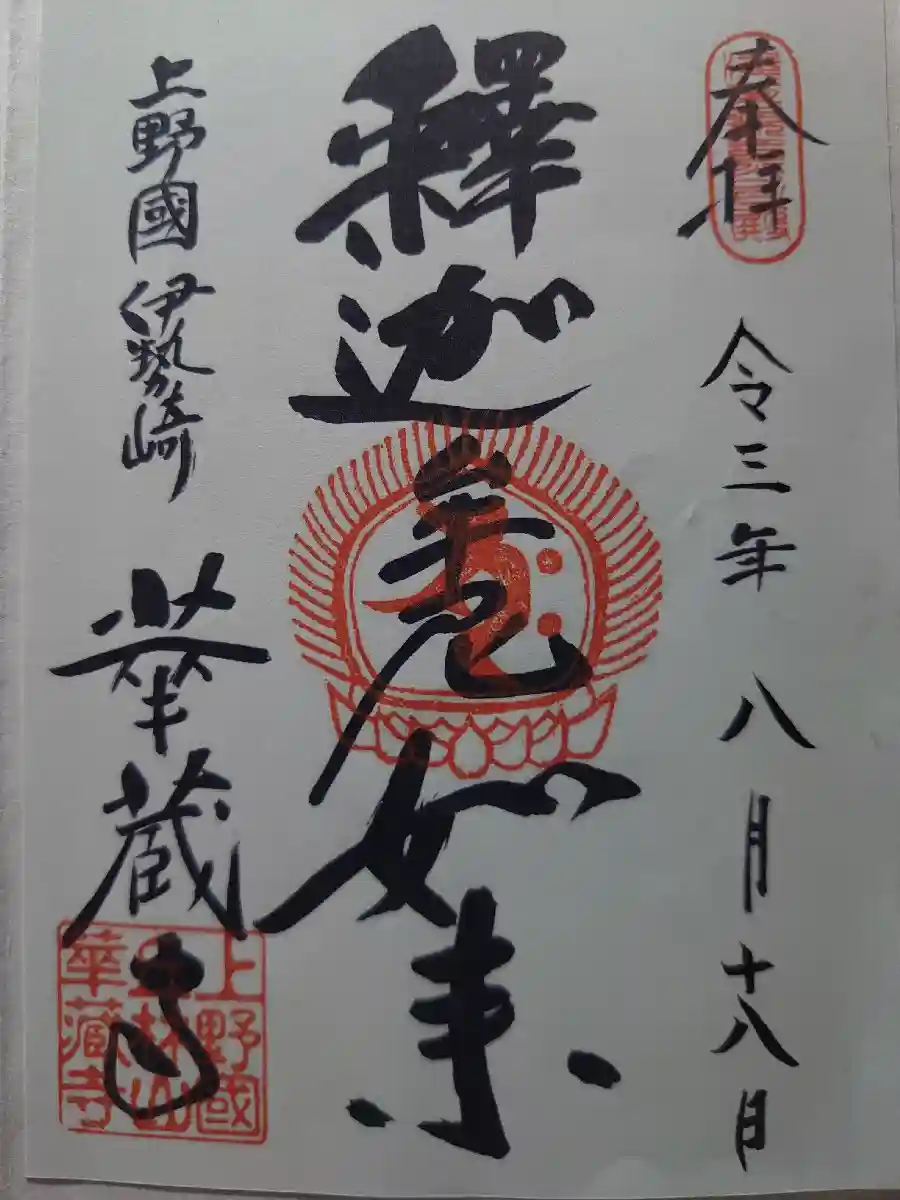 奉拝
令三年 八月十八日
釋迦牟尼如来
上野國伊勢崎
華蔵寺
上野國
華藏寺